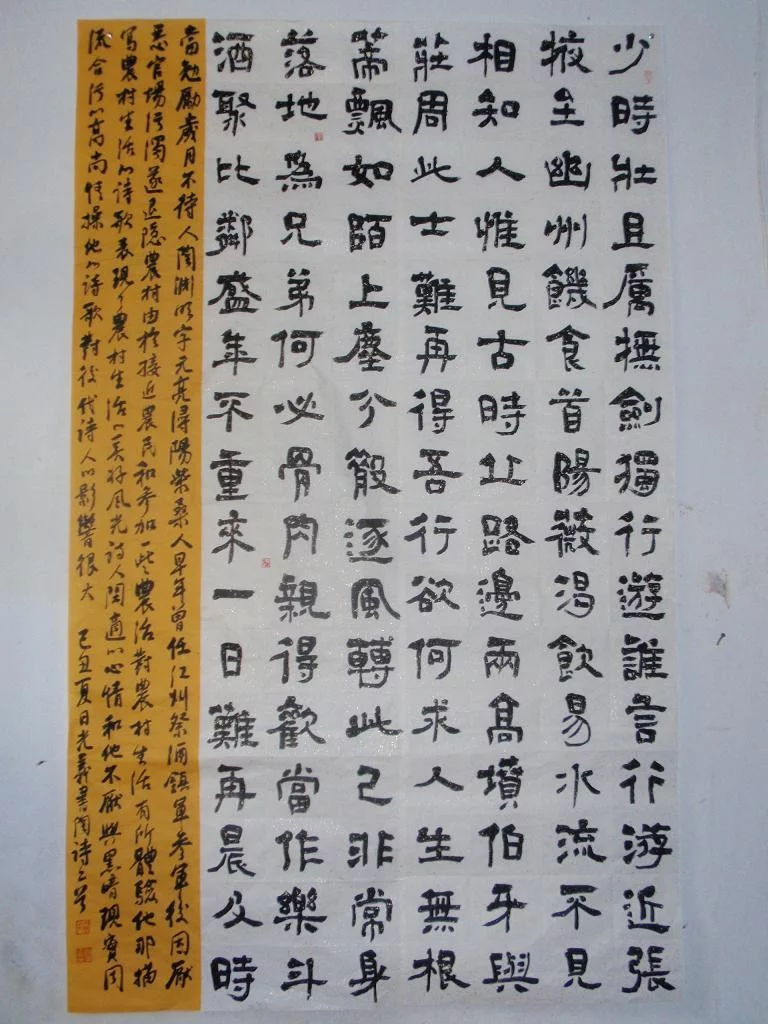 少時壯且厲撫劍獨行遊誰言行游近張
掖至幽州饑食首陽薇渴飲易水流不見
相知人惟見古時丘路邊兩高墳伯牙與
莊周此士難再得吾行欲何求人生無根
蒂飄如陌上塵分散逐風轉此已非常身
落地為兄弟何必骨肉親得歡當作樂斗
酒聚比鄰盛年不重來一日難再晨及時
當勉勵歲月不待人陶淵明字元亮潯陽柴桑人早年曾任江州祭酒鎮軍參軍後因厭
惡官場污濁遂退隱農村由於接近農民和參加一些農活對農村生活有所體驗他那描
寫農村生活的詩歌表現了農村生活的美好風光詩人閒適的心情和他不厭與黑暗現實同
流合污的高尚情操他的詩歌對後代詩人的影響很大 己丑夏日光義書陶詩二首